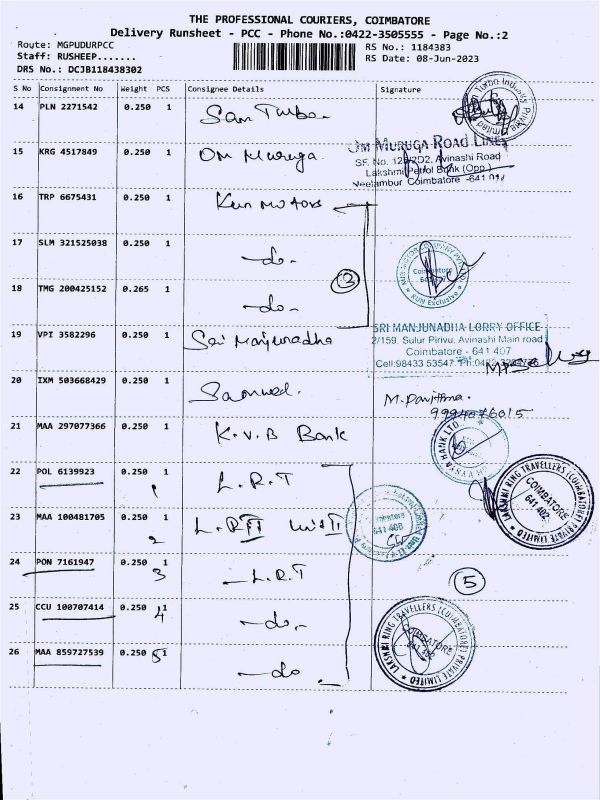 THE PROFESSIONAL COURIERS, COIMBATORE
Delivery Runsheet - PCC - Phone No.:0422-3505555 - Page No.:2
Route: MGPUDURPCC RS No.: 1184383
Staff: RUSHEEP....... RS Date: 08-Jun-2023
DRS No.: DCJB118438302
S No Consignment No Weight PCS Consignee Details Signature
14 PLN 2271542 0.250 1 Sam Turbo
15 KRG 4517849 0.250 1 Om Muruga
OM MURUGA ROAD LINES
SF. No. Avinashi Road
Lakshmi Petrol Bunk (Opp.)
Neelambur Coimbatore
16 TRP 6675431 0.250 1 Kun Motors
17 SLM 321525038 0.250 1 -do-
3
18 TMG 200425152 0.265 1 -do-
19 VPI 3582296 0.250 1 Sai Manjunadha
SRI MANJUNADHA LORRY OFFICE
2/159, Sulur Pirivu, Avinashi Main road
Coimbatore - 641 407
Cell:98433 53547
20 IXM 503668429 0.250 1 Samuel.
M. Pavithra.
9994076015
21 MAA 297077366 0.250 1 K.V.B Bank
22 POL 6139923 0.250 1 L.R.T
1
23 MAA 100481705 0.250 1 L.R.T
2
LAKSHMI RING TRAVELLERS (COIMBATORE) PRIVATE LIMITED
COIMBATORE
641 402
24 PON 7161947 0.250 1 L.R.T
3
5
25 CCU 100707414 0.250 1 -do-
4
26 MAA 859727539 0.250 1 -do-
5
LAKSHMI RING TRAVELLERS (COIMBATORE) PRIVATE LIMITED
COIMBATORE
641 402